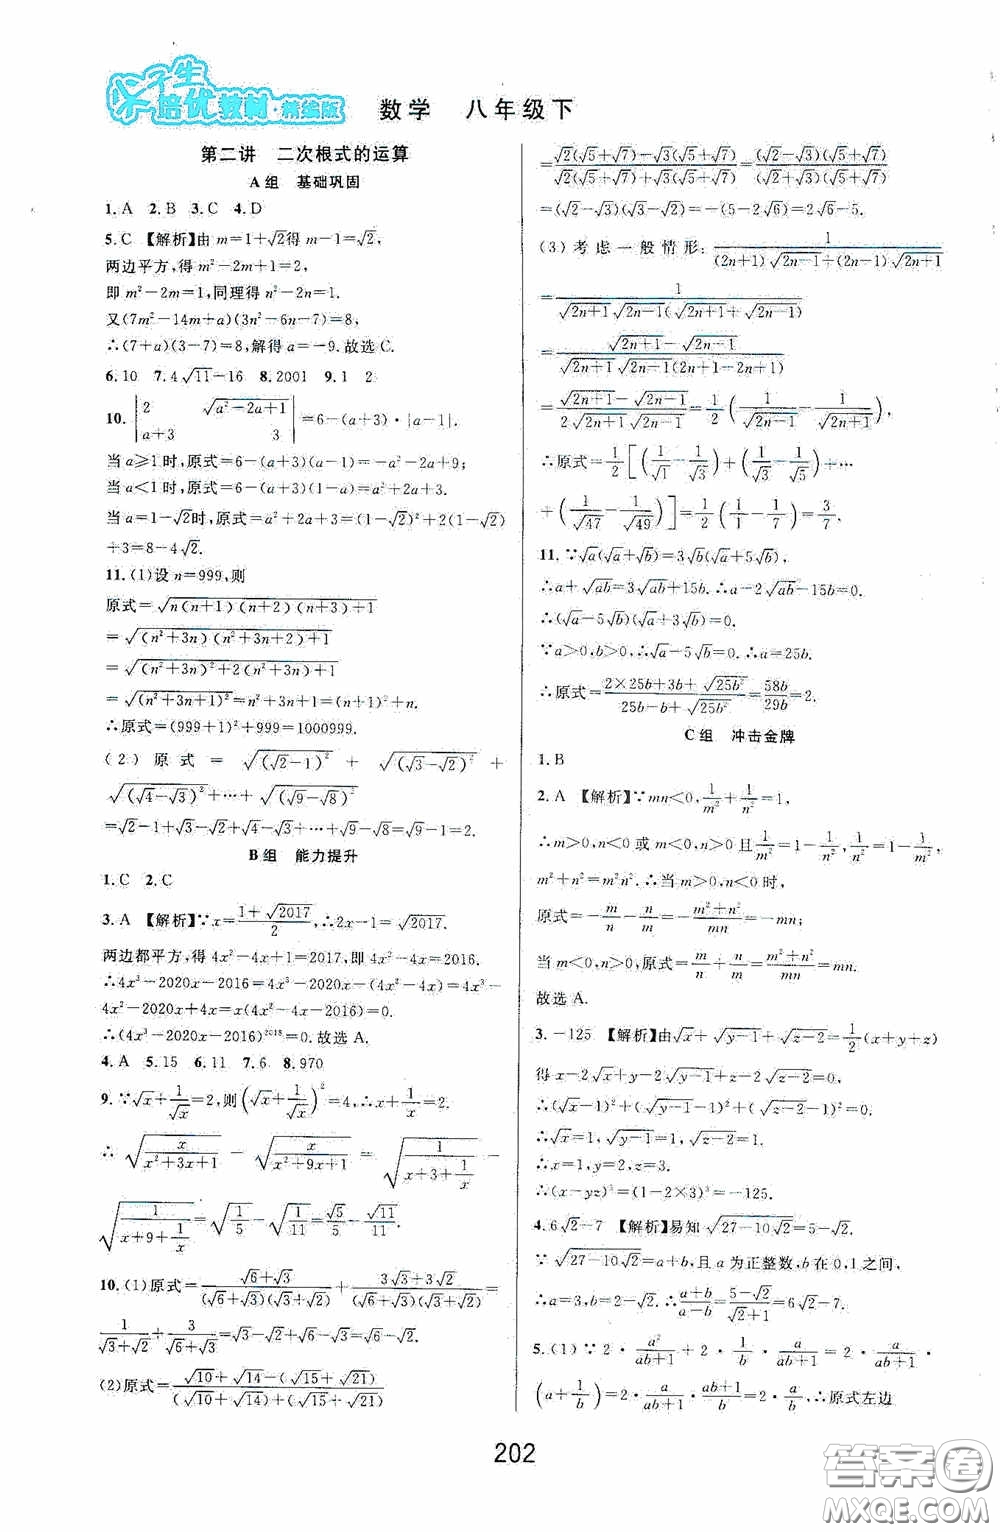 尖子生
培优教材·精编版
数学 八年级下
第二讲 二次根式的运算
A组 基础巩固
1. A 2. B 3. C 4. D
5. C 【解析】由 m=1+√2得 m-1=√2,
两边平方,得 m²-2m+1=2,
即 m²-2m=1,同理得 n²-2n=1.
又(7m²-14m+a)(3n²-6n-7)=8,
∴(7+a)(3-7)=8,解得 a=-9.故选 C.
6. 10 7. 4√11-16 8. 2001 9. 1 2
10. |2 √(a²-2a+1); a+3 3|=6-(a+3)·|a-1|.
当 a≥1 时,原式=6-(a+3)(a-1)=-a²-2a+9;
当 a<1 时,原式=6-(a+3)(1-a)=a²+2a+3.
当 a=1-√2时,原式=a²+2a+3=(1-√2)²+2(1-√2)
+3=8-4√2.
11. (1)设 n=999,则
原式=√(n(n+1)(n+2)(n+3)+1)
=√((n²+3n)(n²+3n+2)+1)
=√((n²+3n)²+2(n²+3n)+1)
=√((n²+3n+1)²)=n²+3n+1=(n+1)²+n.
∴原式=(999+1)²+999=1000999.
(2)原式=√((√2-1)²)+√((√3-√2)²)+
√((√4-√3)²)+⋯+√((√9-√8)²)
=√2-1+√3-√2+√4-√3+⋯+√9-√8=√9-1=2.
B组 能力提升
1. C 2. C
3. A 【解析】∵x=(1+√2017)/2,∴2x-1=√2017.
两边都平方,得 4x²-4x+1=2017,即 4x²-4x=2016.
∴4x³-2020x-2016=4x³-2020x-(4x²-4x)=4x³-
4x²-2020x+4x=x(4x²-4x-2016)=0.
∴(4x³-2020x-2016)²⁰¹⁸=0.故选 A.
4. A 5. 15 6. 11 7. 6 8. 970
9. ∵√x+1/√x=2,则(√x+1/√x)²=4,∴x+1/x=2.
∴√(x/(x²+3x+1))-√(x/(x²+9x+1))=√(1/(x+3+1/x))-
√(1/(x+9+1/x))=√(1/5)-√(1/11)=√5/5-√11/11.
10. (1)原式=(√6+√3)/((√6+√3)(√3+√2))+(3√3+3√2)/((√6+√3)(√3+√2))=
1/(√3+√2)+3/(√6+√3)=√3-√2+√6-√3=√6-√2.
(2)原式=(√10+√14-(√15+√21))/((√10+√14)+(√15+√21))
=(√2(√5+√7)-√3(√5+√7))/(√2(√5+√7)+√3(√5+√7))=((√2-√3)(√5+√7))/((√2+√3)(√5+√7))
=(√2-√3)(√3-√2)=-(5-2√6)=2√6-5.
(3)考虑一般情形:1/((2n+1)√(2n-1)+(2n-1)√(2n+1))
=1/(√(2n+1)√(2n-1)(√(2n+1)+√(2n-1)))
=(√(2n+1)-√(2n-1))/(√(2n+1)√(2n-1)(2n+1-2n+1))
=(√(2n+1)-√(2n-1))/(2√(2n+1)√(2n-1))=1/2(1/√(2n-1)-1/√(2n+1)),
∴原式=1/2[(1/√1-1/√3)+(1/√3-1/√5)+⋯
+(1/√47-1/√49)]=1/2(1/1-1/7)=3/7.
11. ∵√a(√a+√b)=3√b(√a+5√b),
∴a+√(ab)=3√(ab)+15b,∴a-2√(ab)-15b=0.
∴(√a-5√b)(√a+3√b)=0.
∵a>0,b>0,∴√a-5√b=0.∴a=25b.
∴原式=(2×25b+3b+√(25b²))/(25b-b+√(25b²))=58b/29b=2.
C组 冲击金牌
1. B
2. A 【解析】∵mn<0,1/m²+1/n²=1,
∴m>0,n<0 或 m<0,n>0 且 1/m²=1-1/n²,1/n²=1-1/m²,
m²+n²=m²n².∴当 m>0,n<0 时,
原式=-m/n-n/m=-(m²+n²)/mn=-mn;
当 m<0,n>0,原式=m/n+n/m=(m²+n²)/mn=mn.
故选 A.
3. -125 【解析】由√x+√(y-1)+√(z-2)=1/2(x+y+z)
得 x-2√x+y-2√(y-1)+z-2√(z-2)=0,
∴(√x-1)²+(√(y-1)-1)²+(√(z-2)-1)²=0.
∴√x=1,√(y-1)=1,√(z-2)=1.
∴x=1,y=2,z=3.
∴(x-yz)³=(1-2×3)³=-125.
4. 6√2-7 【解析】易知√(27-10√2)=5-√2.
∵√(27-10√2)=a+b,且 a 为正整数,b 在 0,1 之间,
∴a=3,b=2-√2.∴(a+b)/(a-b)=(5-√2)/(√2+1)=6√2-7.
5. (1)∵2·a²/(ab+1)+2·1/b·a/(ab+1)=2·a/(ab+1)·
(a+1/b)=2·a/(ab+1)·(ab+1)/b=2·a/b,∴原式左边
202
答案圈
MXQE.COM